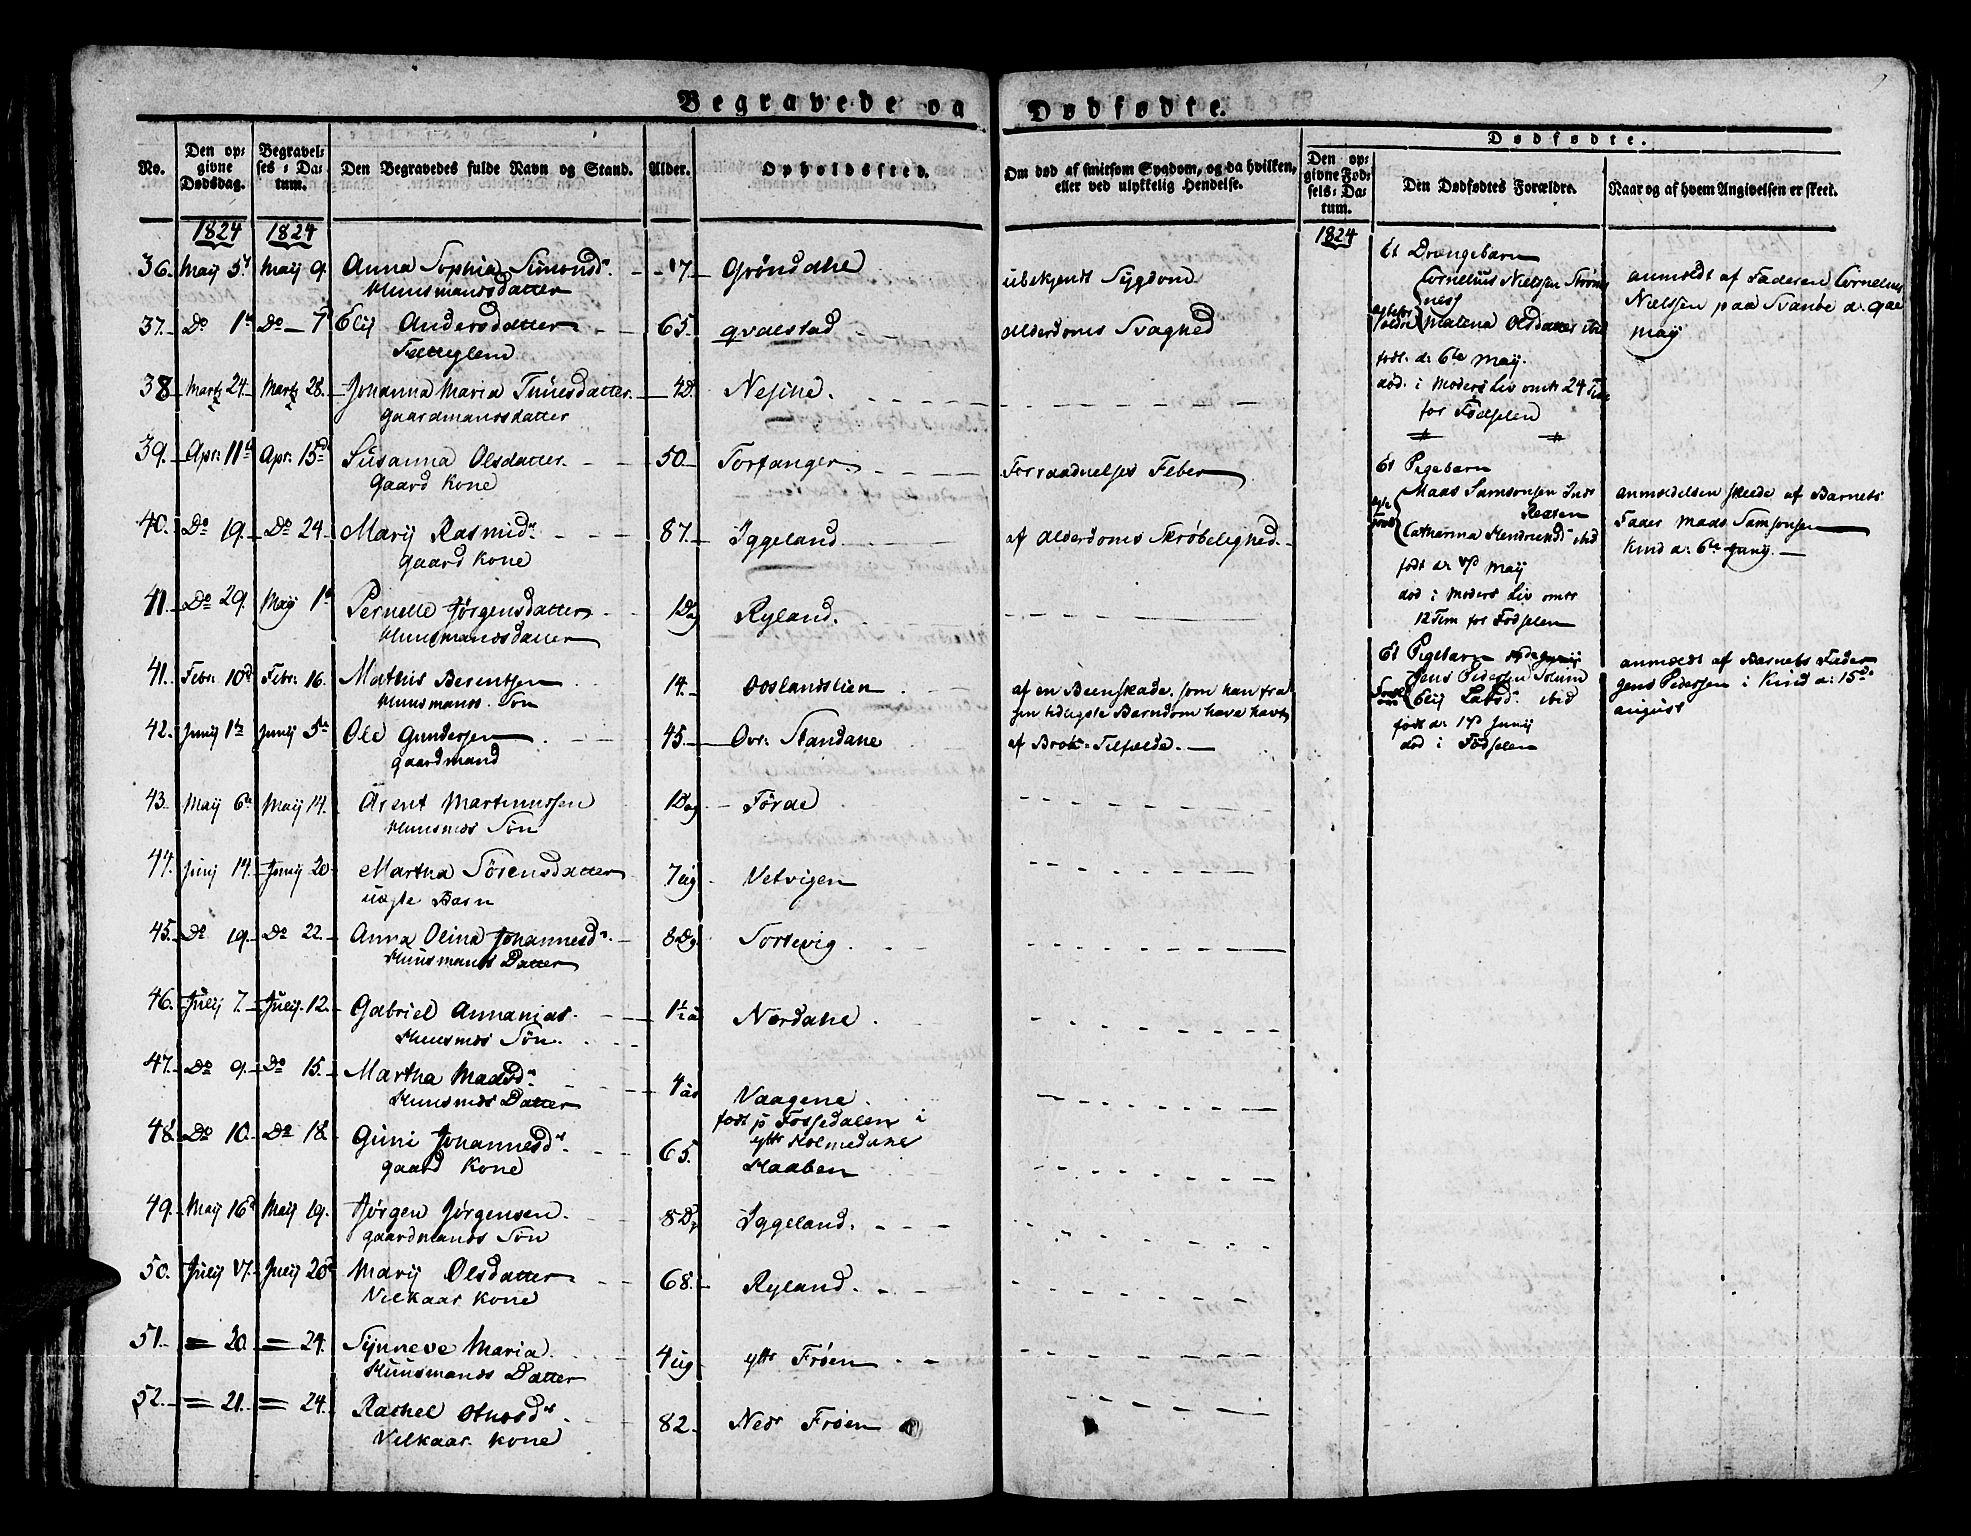 Begravede og Dødfødte.
No. Den opgivne Dødsdag. Begravelses-Datum. Den Begravedes fulde Navn og Stand. Alder. Opholdssted. Om død af smitsom Sygdom, og da hvilken, eller ved ulykkelig Hendelse.
Dødfødte.
Den opgivne Fødsels-Datum. Den Dødfødtes Forældre. Naar og af hvem Angivelsen er skeet.
1824 1824 1824
36. Maij 5 Maij 9. Anna Sophia Simonsd. 17. Grøndahl ubekjendt Sygdom
Huusmandsdatter
37. Do 1 Do 7 Elij Andersdatter 65. qvalstad alderdoms Svaghed
38 Martz 24. Martz 28. Johanna Maria Tunesdatter. 4D. Nesine.
Gaardmandsdatter
39. Apr: 11 Apr: 15 Susanna Olsdatter. 50 Torfanger Forraadnelses Feber
Gaard Kone
40. Do 19. Do 24. Marij Rasmusd. 87. Iggeland. af Alderdoms Skrøbelighed.
Gaard Kone
41. Do 29. Maij 1 Pernelle Jørgensdatter 1Dag Ryland.
Huusmandsdatter
41. Febr: 10 Febr: 16. Mathis Berentsen 14. Ooslandslien af en Beenskade, som han fra
Huusmands Søn sin tidligste Barndom have havt
42. Junij 1 Junij 5 Ole Gundersen 45. Ovr: Standane af Brok-Tilfælde.
Gaardmand
43. Maij 6 Maij 14. Arent Martinussen 1Dag Førde
Huusmds Søn
44. Junij 14. Junij 20 Martha Sørensdatter 7 ug Vetvigen
uægte Barn
45. Do 19. Do 22. Anna Olina Johannesd. 8Dg Tortevig.
Huusmands Datter
46. Julij 7. Julij 12. Gabriel Annanias. 1½ a Nordahl
Huusmds Søn.
47. Do 9. Do 15. Martha Madsd. 4 aar Vaagene.
Huusmds Datter
48. Do 10. Do 18. Guni Johannesd. 65. født p Fossedalen i
ytr Holmedahl
Gaard Kone Haaben
49. Maij 16 Maij 19. Jørgen Jørgensen. 8D Iggeland.
Gaardmands Søn
50. Julij 17. Julij 20 Marij Olsdatter 68. Ryland.
Vilkaar Kone
51. = 20. = 24. Synneve Maria. 4 ug ytr Frøen
Huusmands Datter
52. = 21. = 24. Rachel 82. Nedr Frøen
Vilkaar Kone
Et Drengebarn
Cornelius Nielsen
Malena Olsdatter ibid
født d: 6te Maij.
død i Moders Liv omtr 24 Tim
før Fødselen
anmeldt af Faderen Cornelius
Nielsen paa Svanøe d: 9de
Maij
Et Pigebarn
Maas Samsonsen Indr
Redsen
Catharina Hendriksd ibid
født d: 17 Maij
død i Moders Liv omtr
12 Tim før Fødselen
anmeldelsen skeede af Barnets
Fader Mads Samsonsen
Kind d: 6te Junij.
Et Pigebarn
Jens Pedersen Solund
Elij Larsd. ibid
født d: 17 Junij
død i Fødselen
anmeldt af Barnets Fader
Jens Pedersen i Kind d: 15de
august